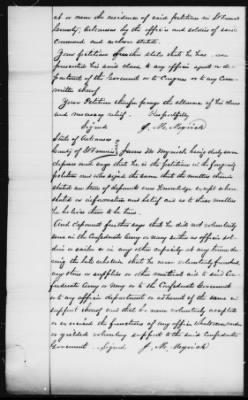 at or near the residence of said petitioner in St Francis
County, Arkansas by the officers and soldiers of said
command and as above stated.
Your petitioner further states that he has never
presented his said claim to any officer agent or de-
partment of the Government or to Congress or to any Com-
mittee thereof
Your Petitioner therefore prays the allowance of his claim
and necessary relief. Respectfully
Signed J. M.
State of Arkansas
County of St Francis James M. being duly sworn
deposes and says that he is the petitioner in the foregoing
petition and who signed the same that the matters therein
stated are true of deponents own Knowledge except when
stated on information and belief and as to those matters
he believes them to be true.
And deponent further says that he did not voluntarily
serve in the Confederate Army or navy either as officer sol-
dier or sailor or in any other capacity at any time du-
ring the late rebellion that he never voluntarily furnished
any stores or supplies or other material aid to said Con-
federate Army or Navy or to the Confederate Government
or to any officer department or adherent of the same in
support thereof and that he never voluntarily accepted
or exercised the functions of any office whatsoever under
or yielded voluntary support to the said Confederate
Government. Signed J. M.